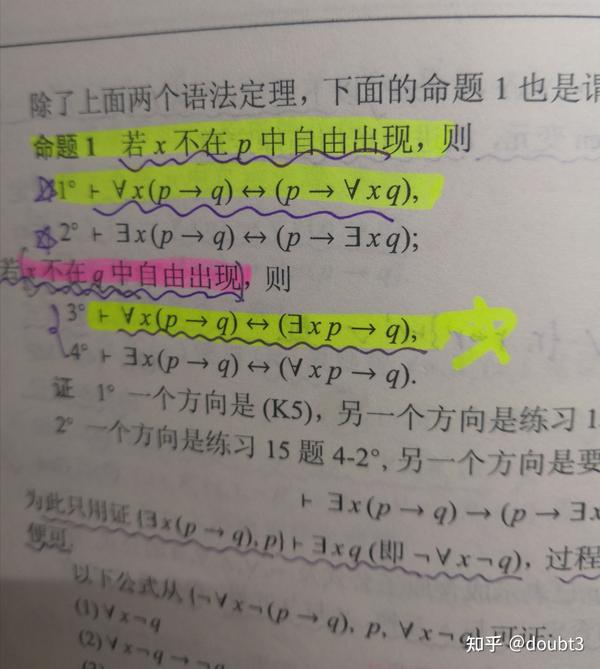 除了上面两个语法定理，下面的命题 1 也是谓
命题 1 若 x 不在 p 中自由出现，则
1° ⊢ ∀x(p → q) ↔ (p → ∀xq),
2° ⊢ ∃x(p → q) ↔ (p → ∃xq);
若 x 不在 q 中自由出现，则
3° ⊢ ∀x(p → q) ↔ (∃xp → q),
4° ⊢ ∃x(p → q) ↔ (∀xp → q).
证 1° 一个方向是 (K5)，另一个方向是练习 1
2° 一个方向是练习 15 题 4-2°, 另一个方向是要
⊢ ∃x(p → q) → (p → ∃x
为此只用证 {∃x(p → q), p} ⊢ ∃xq (即 ¬∀x¬q)，过程
便可.
以下公式从 {¬∀x¬(p → q), p, ∀x¬q} 可证:
(1) ∀x¬q
(2) ∀x¬q → ¬q
知乎 @doubt3